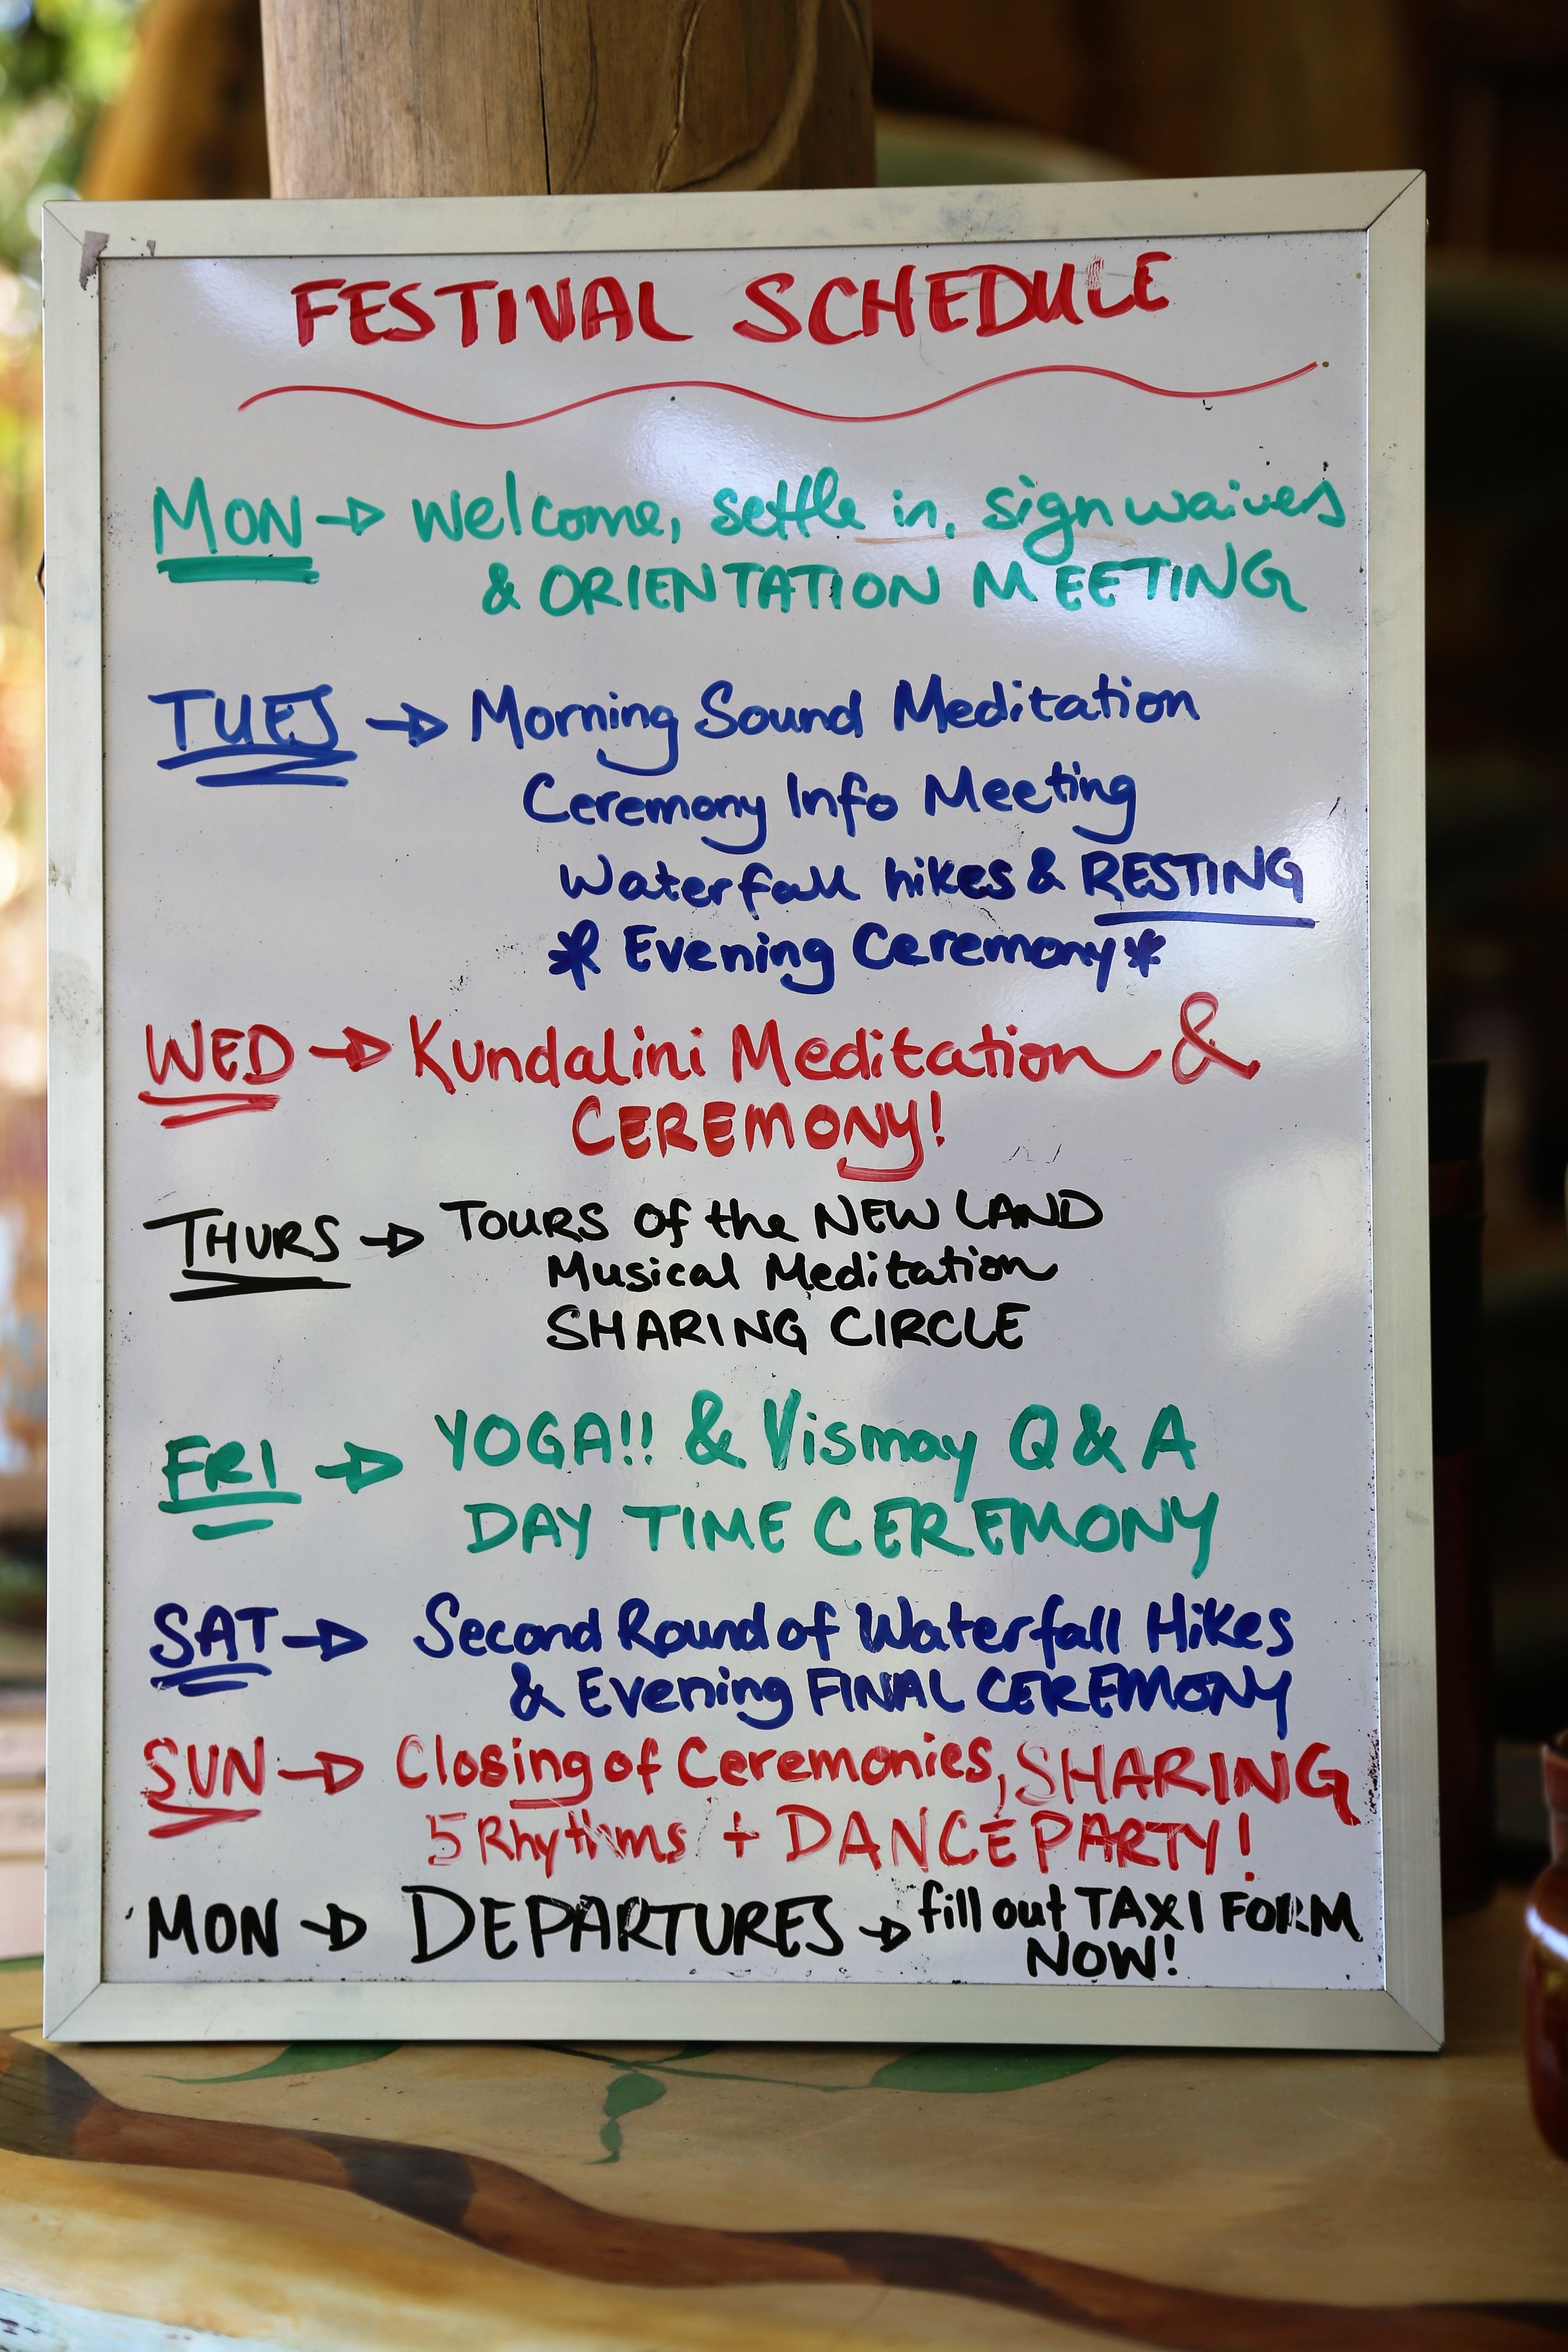 FESTIVAL SCHEDULE
MON → Welcome, settle in, sign waivers
& ORIENTATION MEETING
TUES → Morning Sound Meditation
Ceremony Info Meeting
Waterfall hikes & RESTING
* Evening Ceremony *
WED → Kundalini Meditation &
CEREMONY!
THURS → TOURS of the NEW LAND
Musical Meditation
SHARING CIRCLE
FRI → YOGA!! & Vismay Q & A
DAY TIME CEREMONY
SAT → Second Round of Waterfall Hikes
& Evening FINAL CEREMONY
SUN → Closing of Ceremonies, SHARING
5 Rhythms + DANCE PARTY!
MON → DEPARTURES → fill out TAXI FORM
NOW!